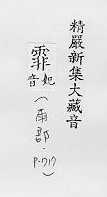 精嚴新集大藏音
霏妃音(雨部.P.717)